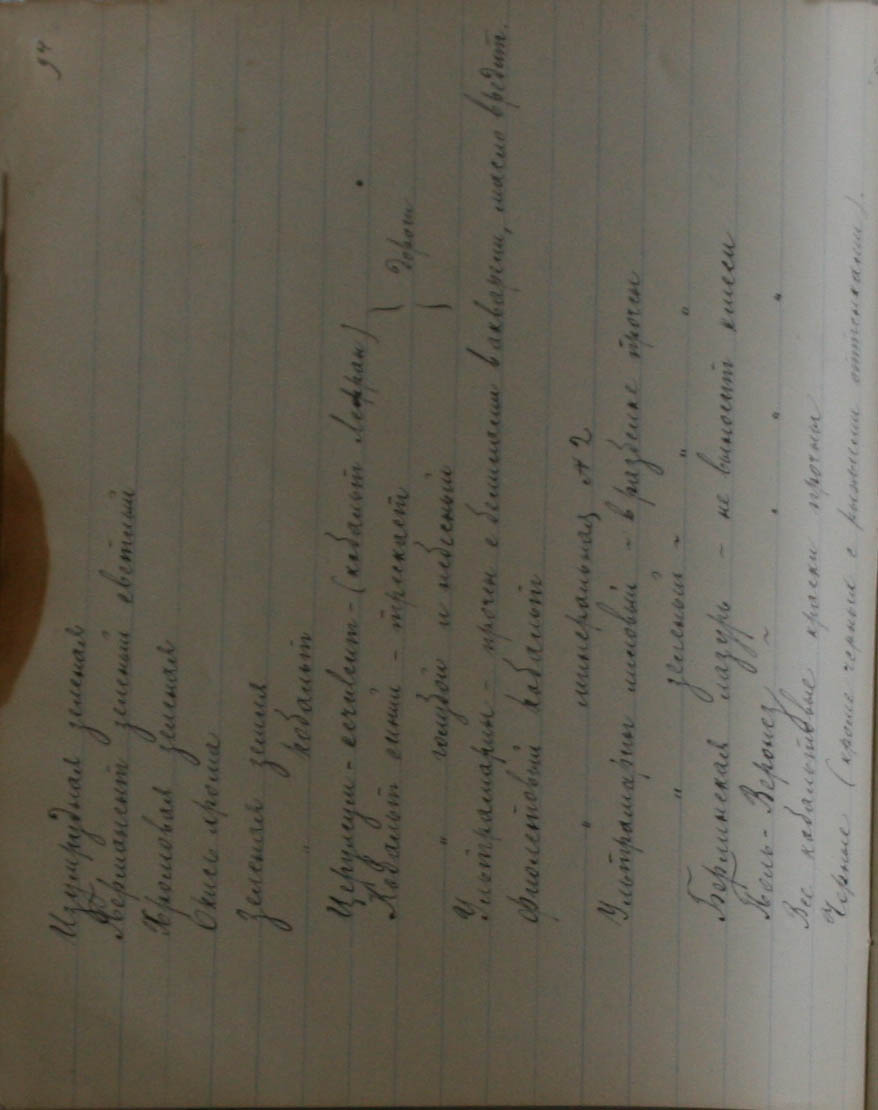 94
Изумрудная зеленая
Перманент зеленый светлый
Хромовая зеленая
Окись хрома
Зеленая земля
" кобальт
Церулеум - (кобальт Лефран)
Кобальт синий - трескает } дорог
" голубой и небесный }
Ультрамарин - прочен с белилами в акварели, масло вредит.
Фиолетовый кобальт
" минеральная № 2
Ултрамарин лиловый - в разбелке прочен
" зеленый ~ " "
Берлинская лазурь - не выносит смеси
Поль-Веронез ~ " " "
Все кобальтовые краски прочны
Черные (кроме черных с рыжими оттенками).